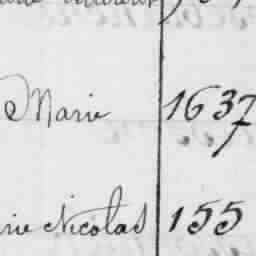 Marie 1637
rie Nicolas 155